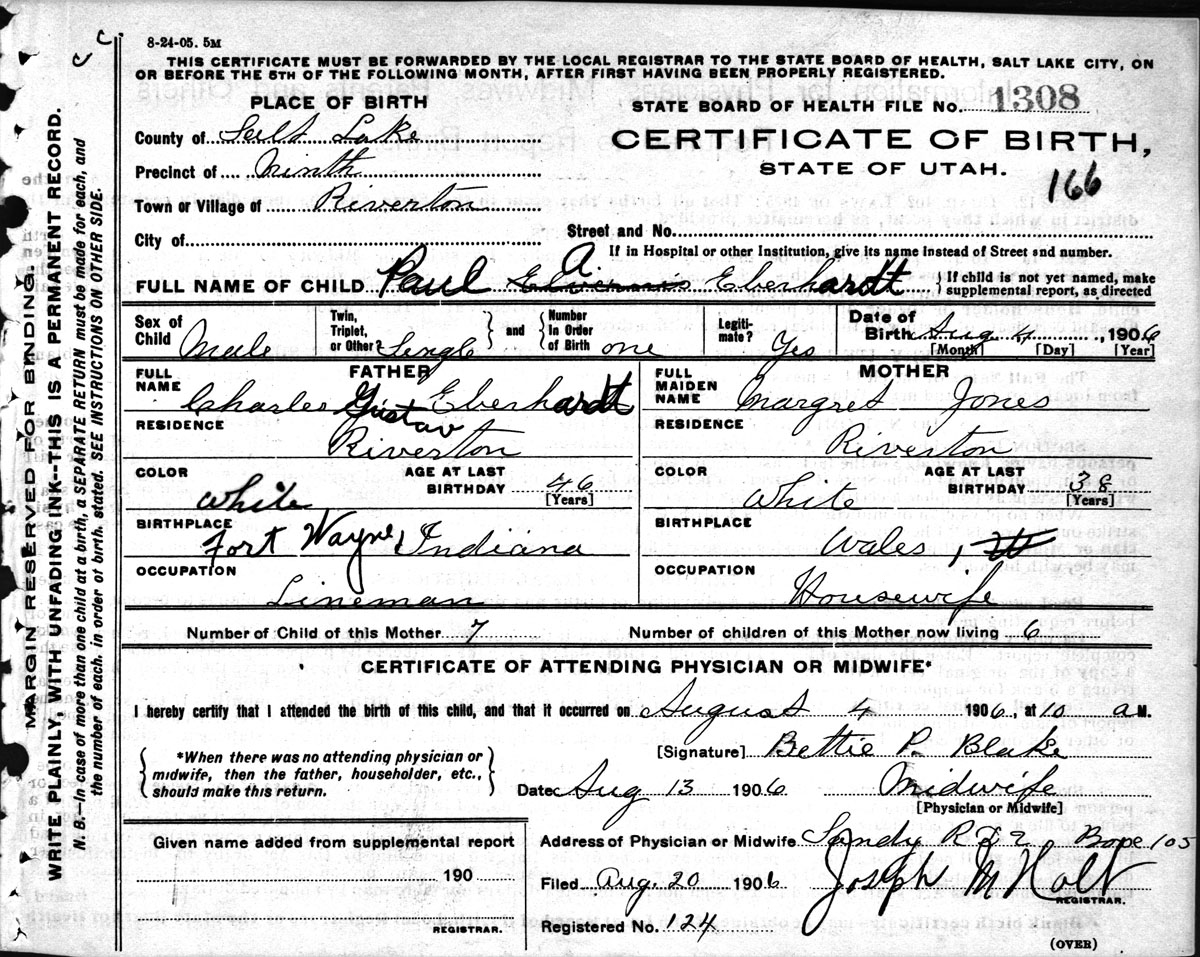 8-24-05. 5M
THIS CERTIFICATE MUST BE FORWARDED BY THE LOCAL REGISTRAR TO THE STATE BOARD OF HEALTH, SALT LAKE CITY, ON
OR BEFORE THE 5TH OF THE FOLLOWING MONTH, AFTER FIRST HAVING BEEN PROPERLY REGISTERED.
MARGIN RESERVED FOR BINDING.
WRITE PLAINLY, WITH UNFADING INK--THIS IS A PERMANENT RECORD.
N. B.—In case of more than one child at a birth, a SEPARATE RETURN must be made for each, and
the number of each, in order of birth, stated. SEE INSTRUCTIONS ON OTHER SIDE.
PLACE OF BIRTH
County of Salt Lake
Precinct of Ninth
Town or Village of Riverton
City of
STATE BOARD OF HEALTH FILE No. 1308
CERTIFICATE OF BIRTH,
STATE OF UTAH.
166
Street and No.
If in Hospital or other Institution, give its name instead of Street and number.
FULL NAME OF CHILD Paul A. Eberhardt
If child is not yet named, make
supplemental report, as directed
Sex of Child Male
Twin, Triplet, or Other? Single
and
Number in Order of Birth one
Legitimate? Yes
Date of Birth Aug 4, 1906
[Month] [Day] [Year]
FATHER
FULL NAME Charles Gustav Eberhardt
RESIDENCE Riverton
COLOR White
AGE AT LAST BIRTHDAY 46 [Years]
BIRTHPLACE Fort Wayne, Indiana
OCCUPATION Lineman
MOTHER
FULL MAIDEN NAME Margret Jones
RESIDENCE Riverton
COLOR White
AGE AT LAST BIRTHDAY 38 [Years]
BIRTHPLACE Wales,
OCCUPATION Housewife
Number of Child of this Mother 7 Number of children of this Mother now living 6
CERTIFICATE OF ATTENDING PHYSICIAN OR MIDWIFE*
I hereby certify that I attended the birth of this child, and that it occurred on August 4 1906, at 10 a M.
*When there was no attending physician or
midwife, then the father, householder, etc.,
should make this return.
[Signature] Bettie P. Blake
Date Aug 13 1906 Midwife
[Physician or Midwife]
Given name added from supplemental report
190
REGISTRAR.
Address of Physician or Midwife Sandy R F 2 Box 105
Filed Aug. 20 1906 Joseph M Holt
REGISTRAR.
Registered No. 124
(OVER)